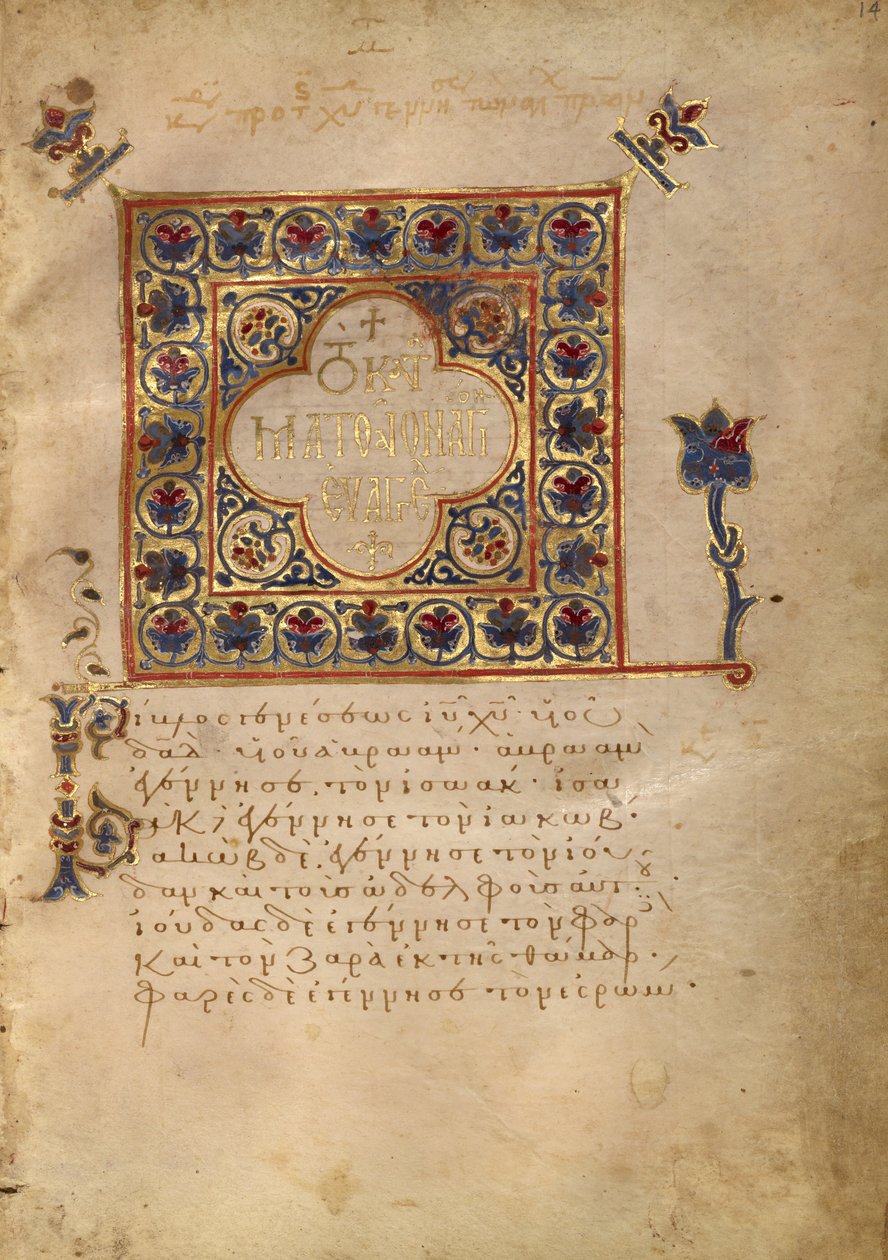 14
κυ πρὸ τ χυ γεννη
τὸ κατ
ματθον αγιον
ευαγγε
Βίβλος γενέσεως ιυ χυ υιου
δαδ · υιου αβρααμ · αβρααμ
ἐγέννησε τὸν ισαάκ · ισα
ακ δὲ ἐγέννησε τὸν ιακωβ ·
ιακὼβ δὲ ἐγέννησε τὸν ιού
δαν καὶ τοὺς ἀδελφοὺς αὐτοῦ ·
ιούδας δὲ ἐγέννησε τὸν φαρὲς
και τὸν ζαρὰ ἐκ τῆς θάμαρ ·
φαρὲς δὲ ἐγέννησε τὸν εσρωμ ·